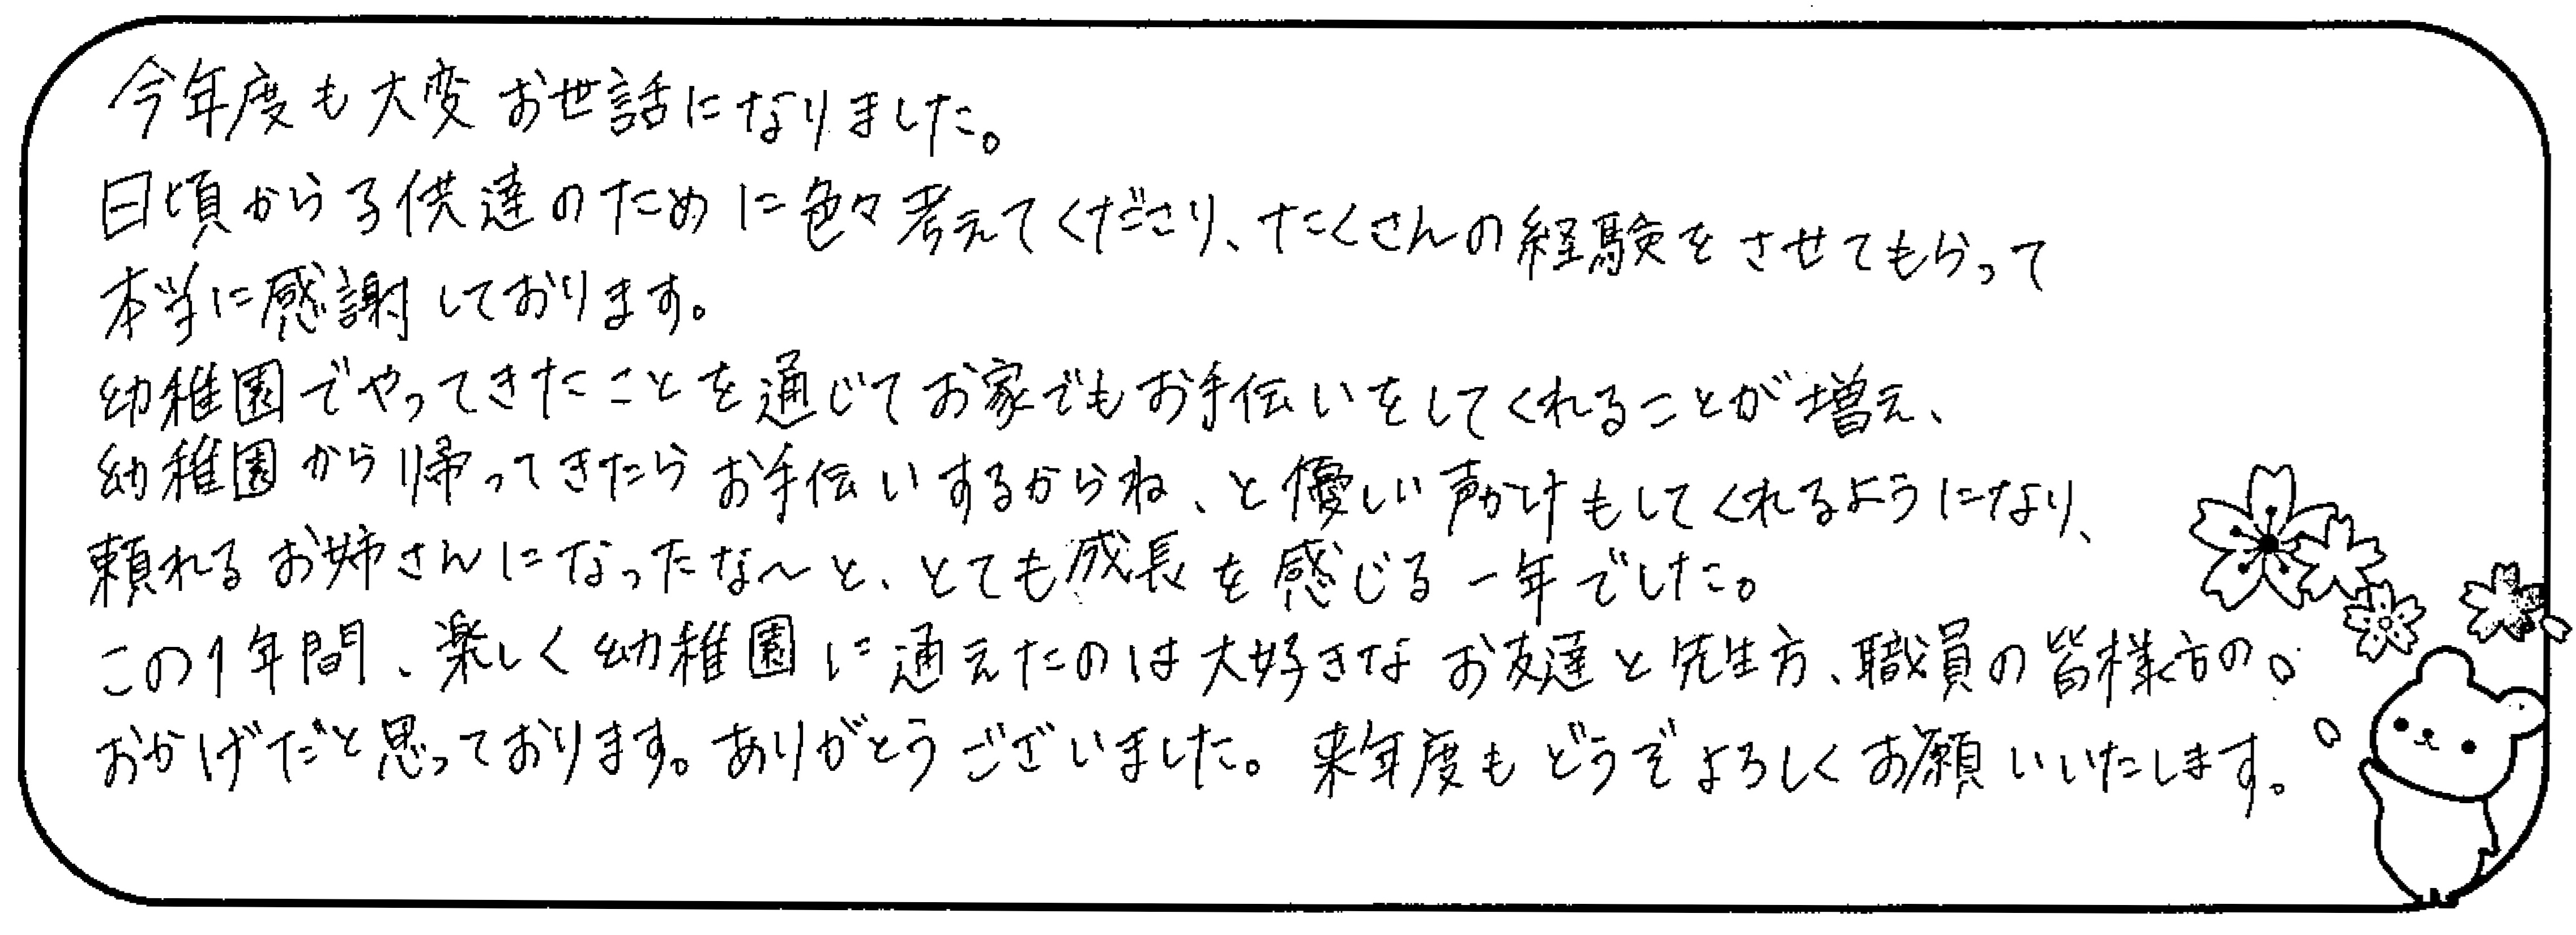 今年度も大変お世話になりました。
日頃から子供達のために色々考えてくださり、たくさんの経験をさせてもらって
本当に感謝しております。
幼稚園でやってきたことを通じてお家でもお手伝いをしてくれることが増え、
幼稚園から帰ってきたらお手伝いするからね、と優しい声かけもしてくれるようになり、
頼れるお姉さんになったな〜と、とても成長を感じる一年でした。
この1年間、楽しく幼稚園に通えたのは大好きなお友達と先生方、職員の皆様方の
おかげだと思っております。ありがとうございました。来年度もどうぞよろしくお願いいたします。